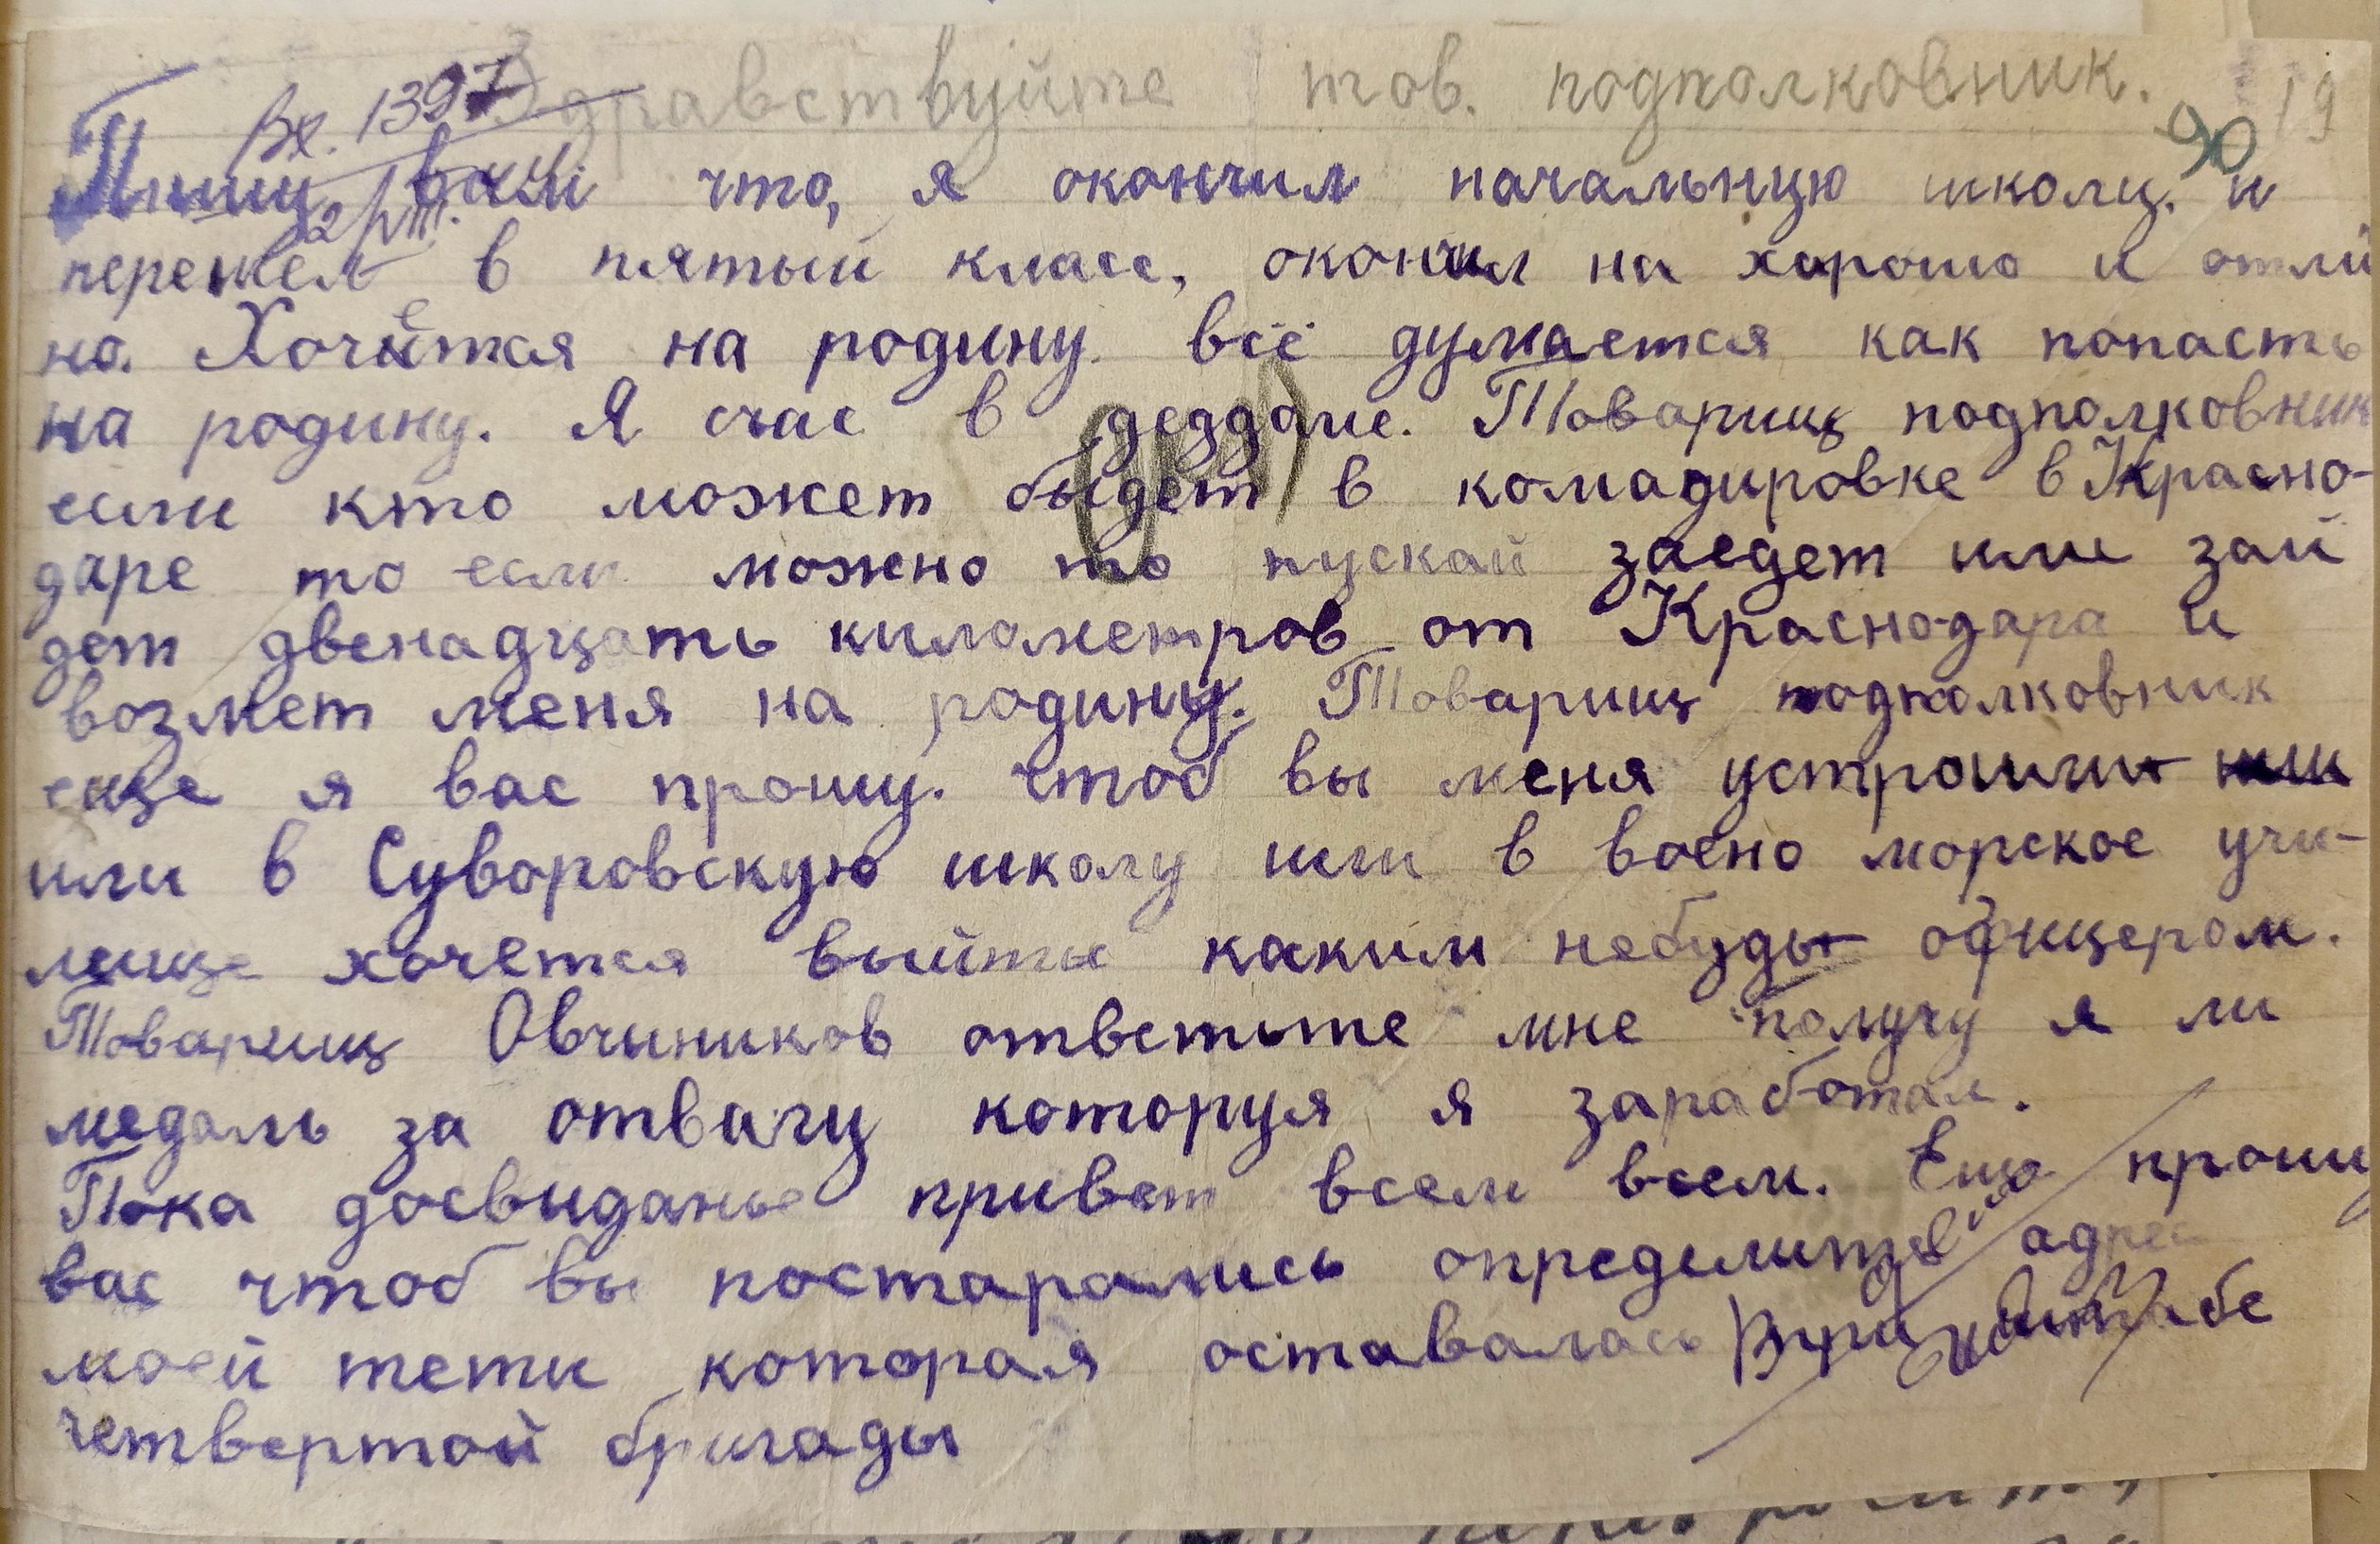 Здравствуйте тов. подполковник.
19
90
Вх. 1397
2/VIII.
Пишу вам что, я окончил начальную школу. и
перешел в пятый класс, окончил на хорошо и отли
но. Хочется на родину. всё думается как попасть
на родину. Я счас в дезддоме. Товарищ подполковник
если кто может быдет в комадировке в Красно-
даре то если можно то пускай заедет или зай
дет двенадцать километров от Краснодара и
возмет меня на родину. Товарищ подполковник
еще я вас прошу. чтоб вы меня устроили
или в Суворовскую школу или в воено морское учи-
лище хочется выйти каким небудь офицером.
Товарищ Овчиников ответьте мне получу я ли
медаль за отвагу которуя я заработал.
Пока досвиданье привет всем всем. Еще прошу
вас чтоб вы постарались определить адрес
моей тети которая оставалась при штабе
четвертой бригады